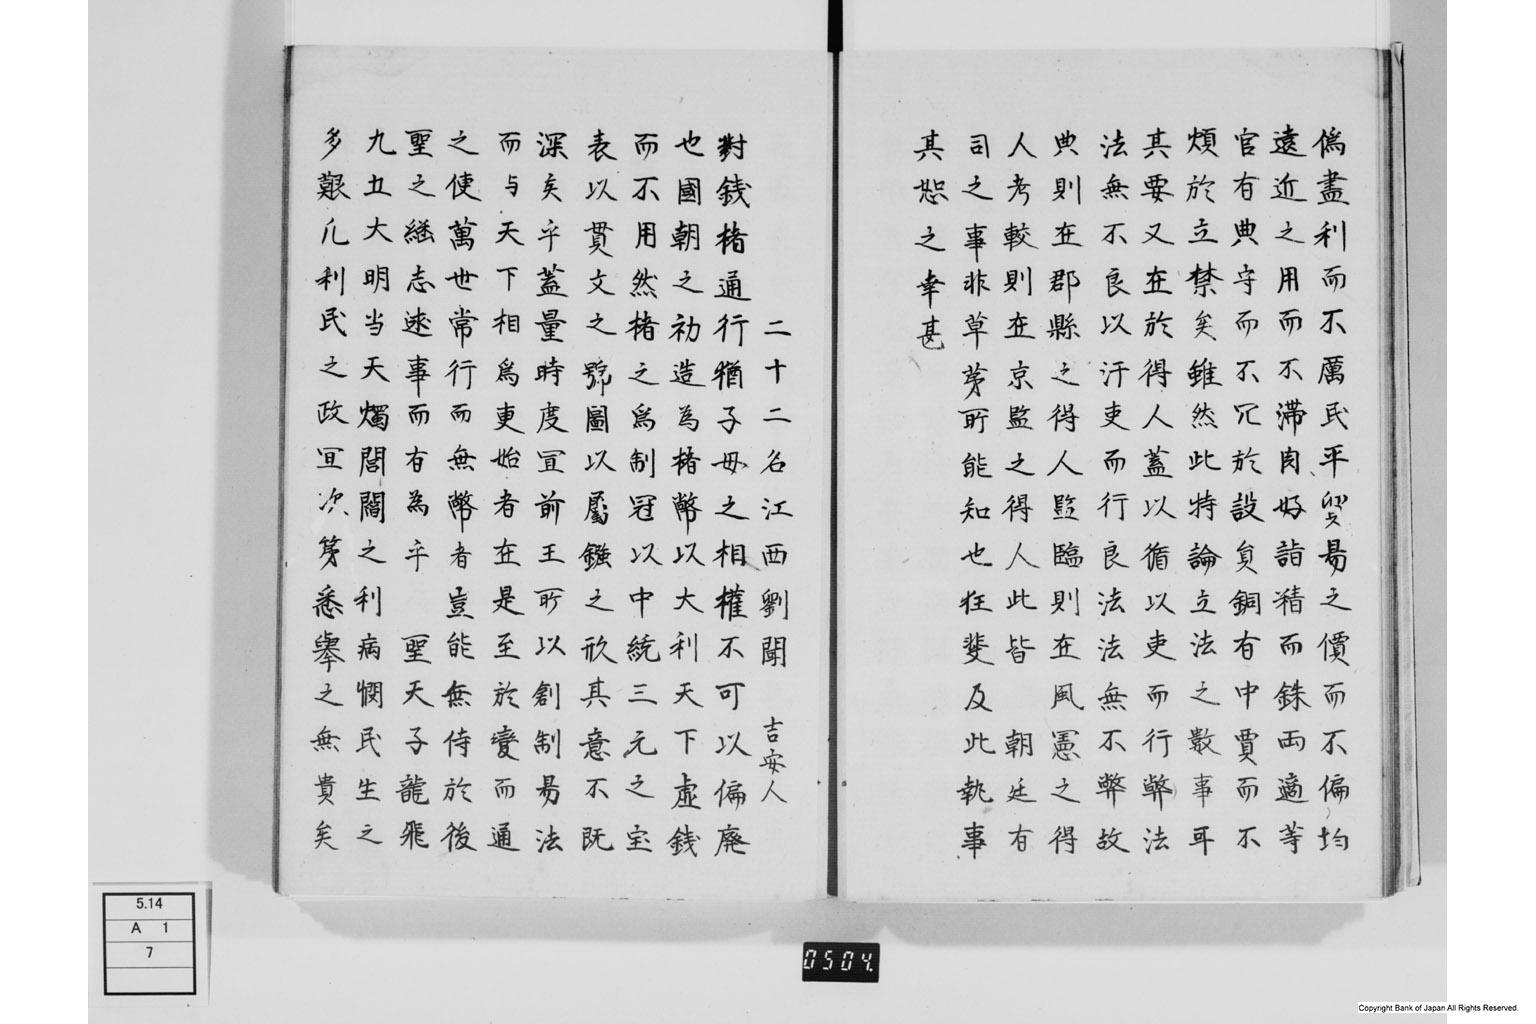 偽盡利而不厲民平貿易之價而不偏均
遠近之用而不滯肉好詣精而銖両適等
官有典守而不冗於設負銅有中賈而不
煩於立禁矣雖然此特論立法之散事耳
其要又在於得人蓋以循以吏而行弊法
法無不良以汗吏而行良法法無不弊故
典則在郡縣之得人監臨則在風憲之得
人考較則在京監之得人此皆　朝廷有
司之事非草茅所能知也狂斐及此執事
其恕之幸甚
二十二名江西劉聞　吉安人
對錢楮通行猶子母之相權不可以偏廃
也國朝之初造為楮幣以大利天下虚錢
而不用然楮之為制冠以中統三元之宝
表以貫文之號圖以屬鏹之㡳其意不既
深矣乎蓋量時度冝前王所以創制易法
而与天下相為更始者在是至於變而通
之使萬世常行而無幣者豈能無待於後
聖之継志述事而有為乎　聖天子龍飛
九五大明当天燭閭閻之利病憫民生之
多艱凡利民之政冝次第悉舉之無貴矣
5.14
A 1
7
0504.
Copyright Bank of Japan All Rights Reserved.